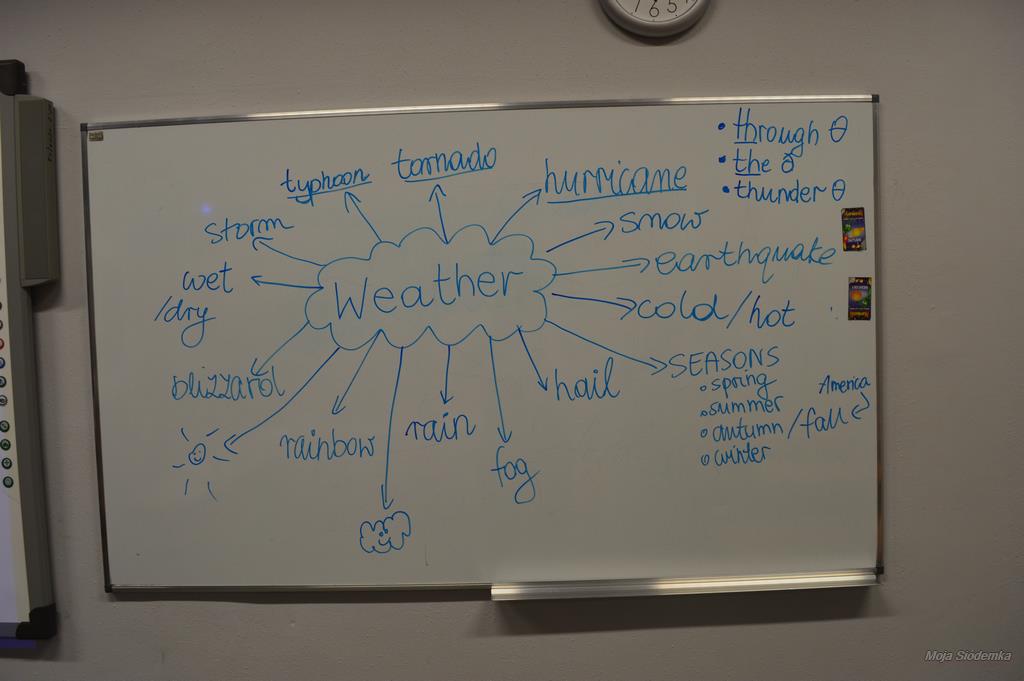 6 5
• through θ
• the ð
• thunder θ
typhoon
tornado
hurricane
storm
snow
wet
/dry
Weather
earthquake
cold/hot
blizzard
hail
SEASONS
spring
summer
autumn/fall
America
winter
rainbow
rain
fog
Moja Siódemka